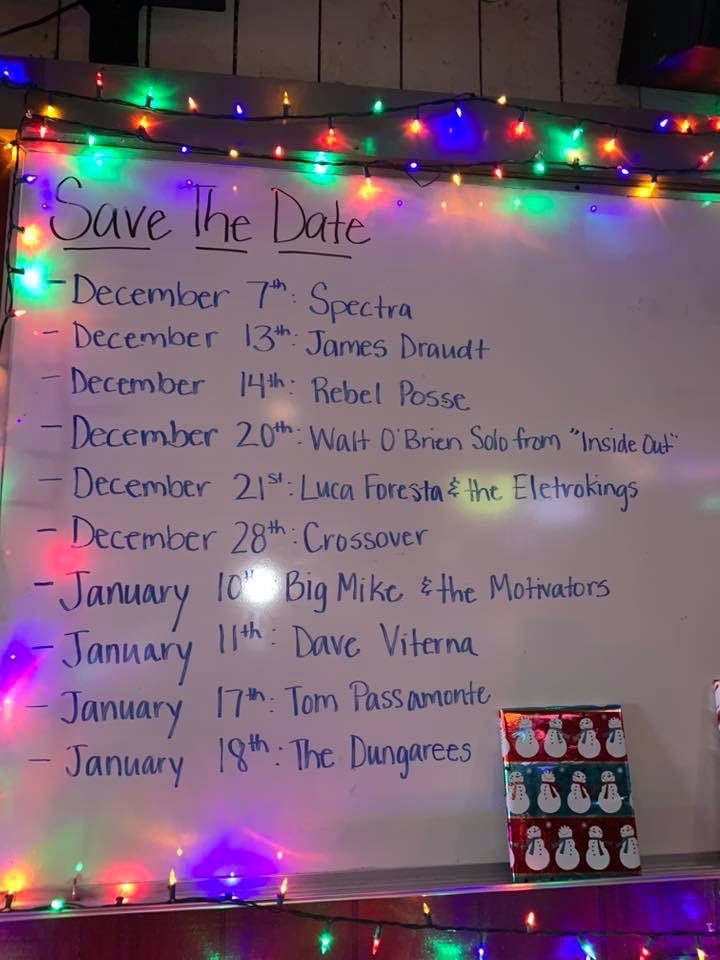 Save The Date
- December 7th: Spectra
- December 13th: James Draudt
- December 14th: Rebel Posse
- December 20th: Walt O'Brien Solo from "Inside Out"
- December 21st: Luca Foresta & the Eletrokings
- December 28th: Crossover
- January 10th Big Mike & the Motivators
- January 11th: Dave Viterna
- January 17th: Tom Passamonte
- January 18th: The Dungarees